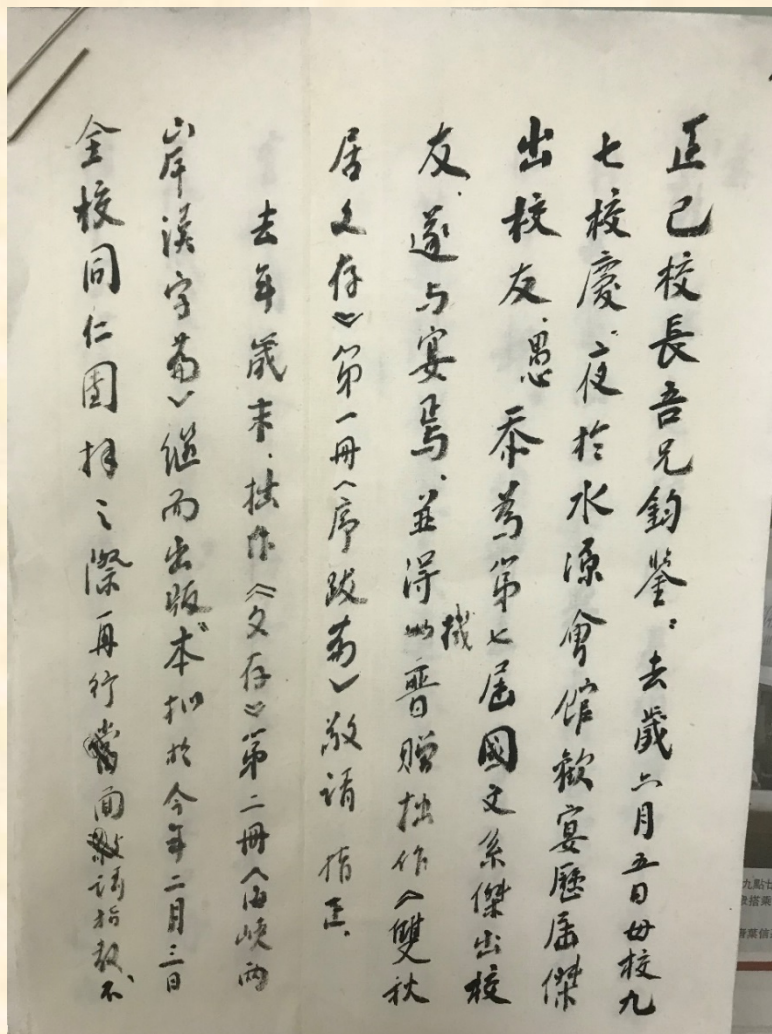 正己校長吾兄鈞鑒：去歲六月五日母校九
七校慶，夜於水源會館歡宴歷屆傑
出校友，愚忝為第七屆國文系傑出校
友，遂与宴焉，並得機以晉贈拙作《雙秋
居文存》第一冊〈序跋篇〉敬請 指正。
去年歲末，拙作《文存》第二冊〈海峽兩
岸漢字篇〉繼而出版，本擬於今年二月三日
全校同仁團拜之際再行當面敬請指教，不
九點廿